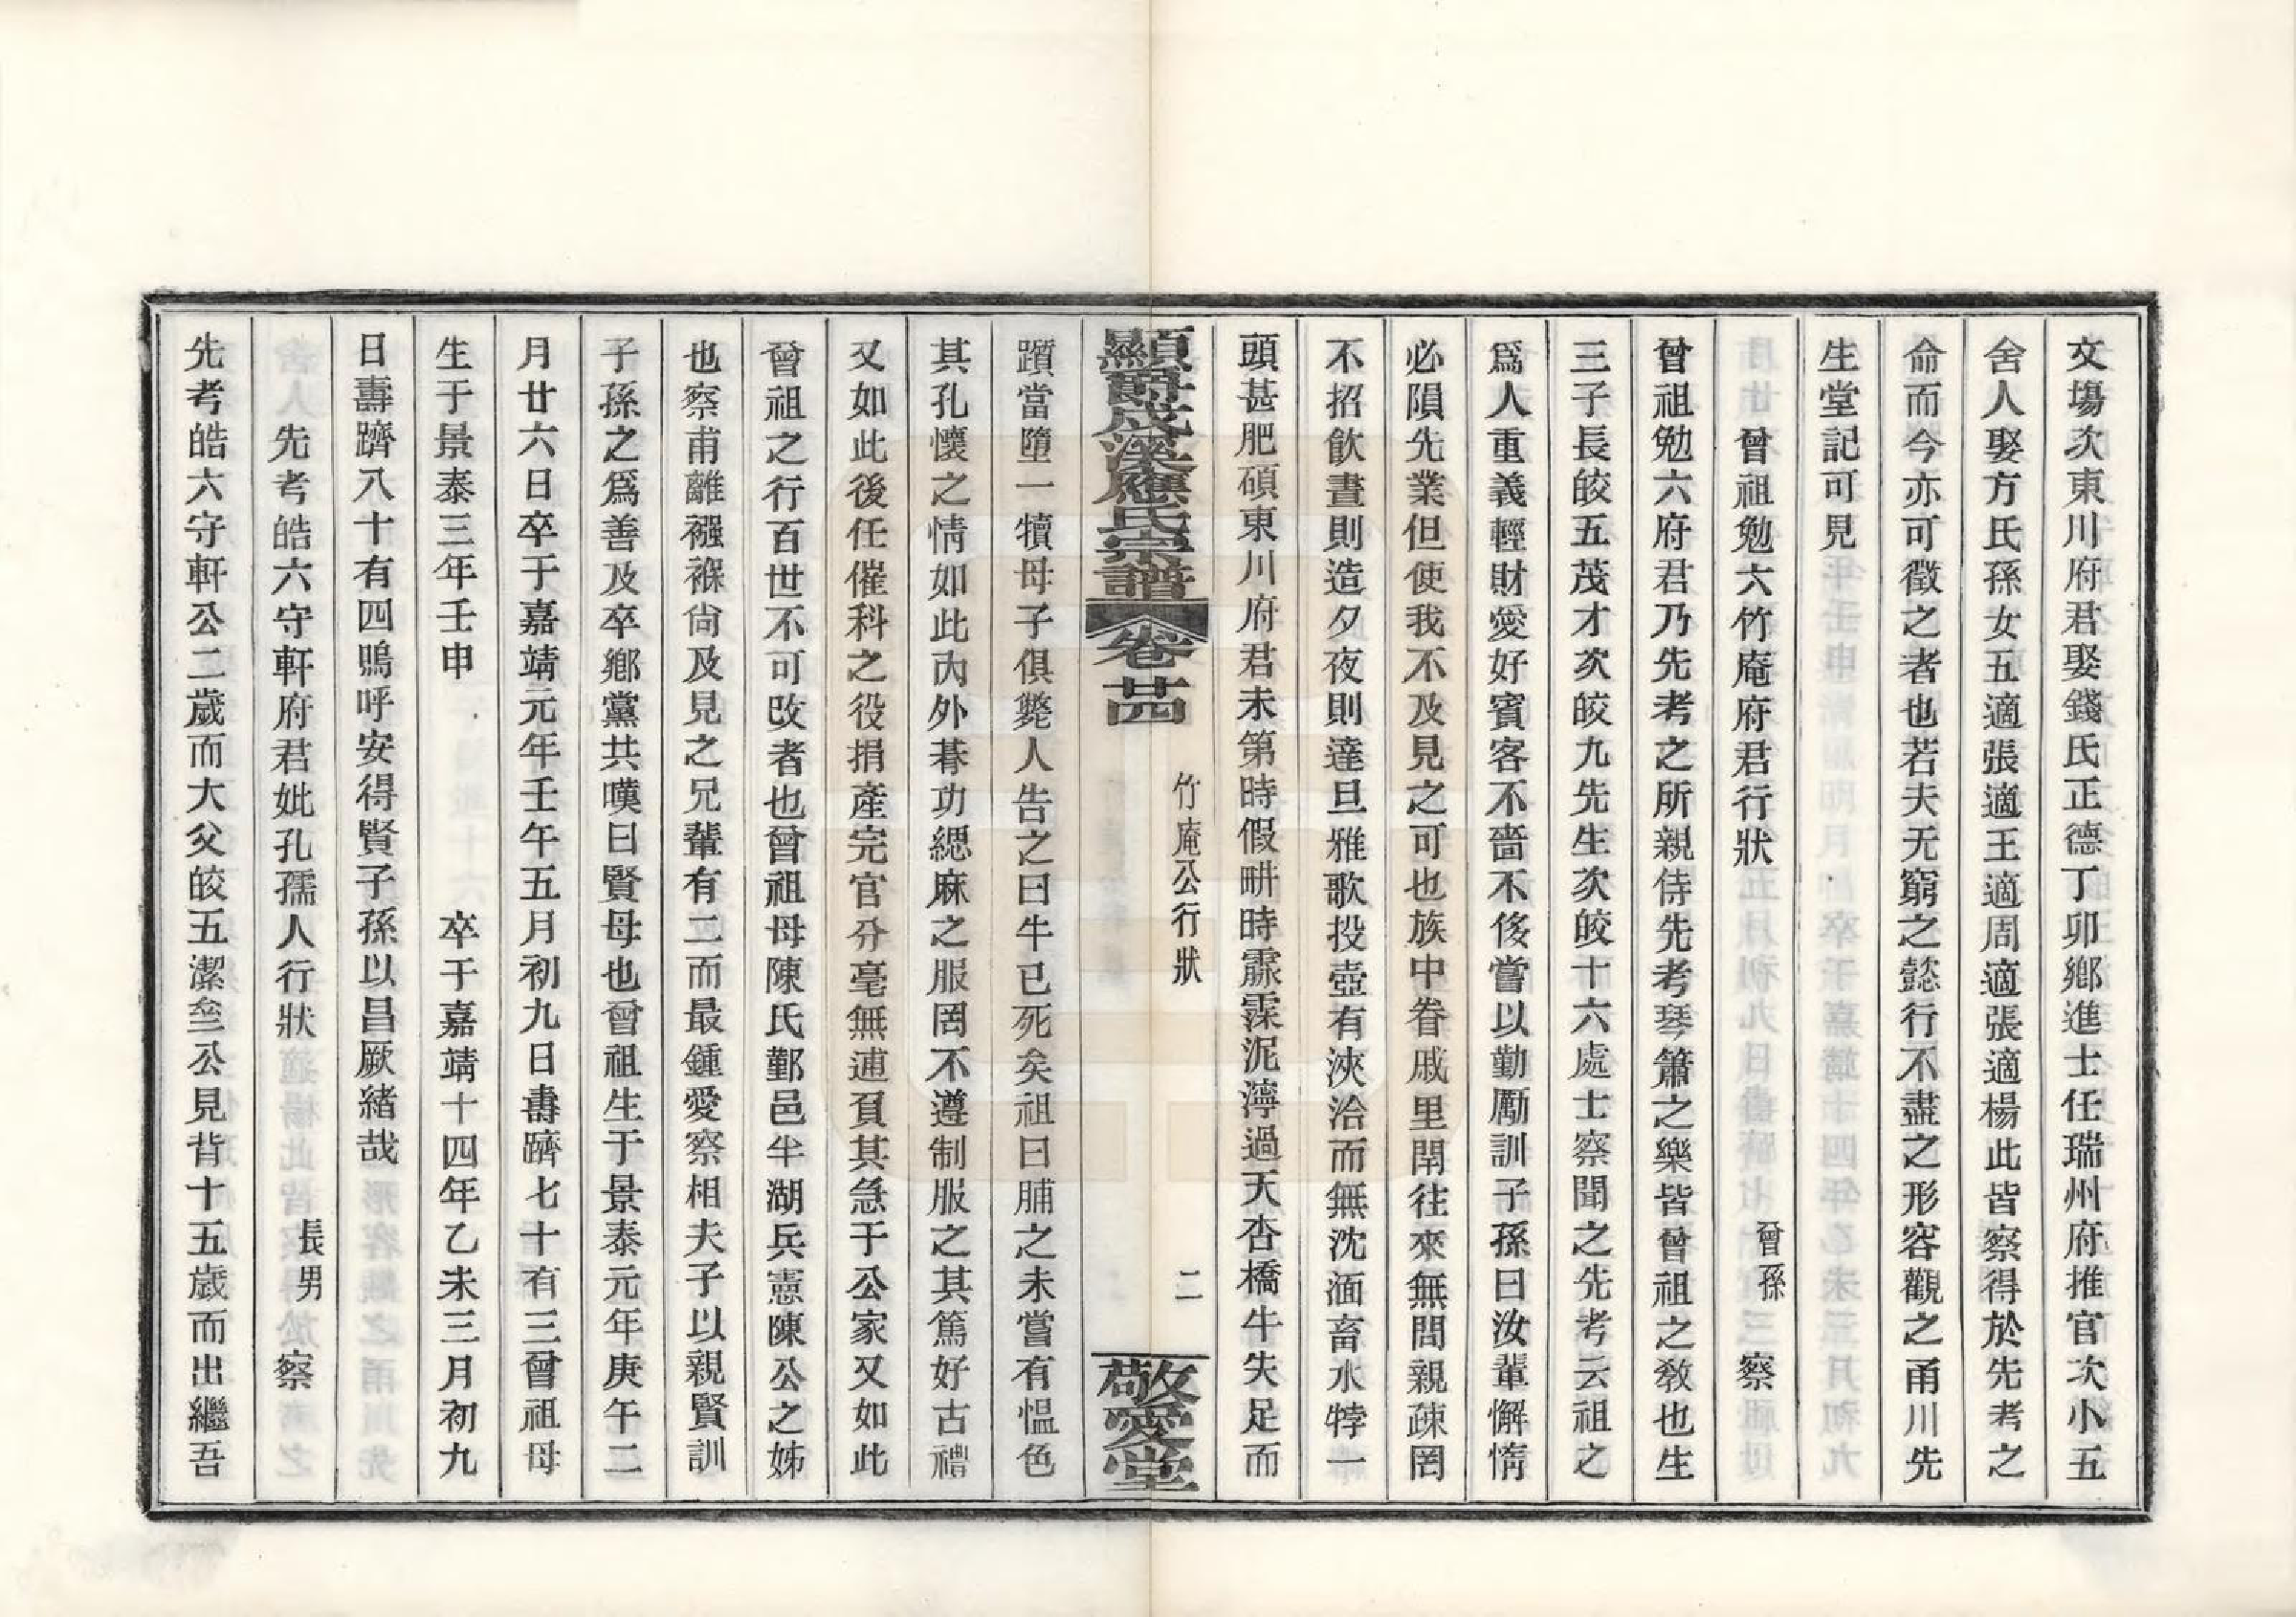 文場次東川府君娶錢氏正德丁卯鄉進士任瑞州府推官次小五
舍人娶方氏孫女五適張適王適周適張適楊此皆察得於先考之
命而今亦可徵之者也若夫无窮之懿行不盡之形容觀之甬川先
生堂記可見
曾祖勉六竹庵府君行狀 曾孫 察
曾祖勉六府君乃先考之所親侍先考琴簫之樂皆曾祖之敎也生
三子長皎五茂才次皎九先生次皎十六處士察聞之先考云祖之
爲人重義輕財愛好賓客不嗇不侈嘗以勤勵訓子孫曰汝輩懈惰
必隕先業但使我不及見之可也族中眷戚里閈往來無間親疎罔
不招飮晝則造夕夜則達旦雅歌投壺有浹洽而無沈湎畜水牸一
頭甚肥碩東川府君未第時假畊時霢霂泥濘過大杏橋牛失足而
顯爵成溪應氏宗譜 卷廿四 竹庵公行狀 二 敬愛堂
躓當墮一犢母子俱斃人告之曰牛已死矣祖曰脯之未嘗有慍色
其孔懷之情如此內外朞功緦麻之服罔不遵制服之其篤好古禮
又如此後任催科之役捐產完官分毫無逋負其急于公家又如此
曾祖之行百世不可改者也曾祖母陳氏鄞邑半湖兵憲陳公之姊
也察甫離襁褓尙及見之兄輩有二而最鍾愛察相夫子以親賢訓
子孫之爲善及卒鄉黨共嘆曰賢母也曾祖生于景泰元年庚午二
月廿六日卒于嘉靖元年壬午五月初九日壽躋七十有三曾祖母
生于景泰三年壬申 卒于嘉靖十四年乙未三月初九
日壽躋八十有四嗚呼安得賢子孫以昌厥緒哉
先考皓六守軒府君妣孔孺人行狀 長男 察
先考皓六守軒公二歲而大父皎五潔叁公見背十五歲而出繼吾